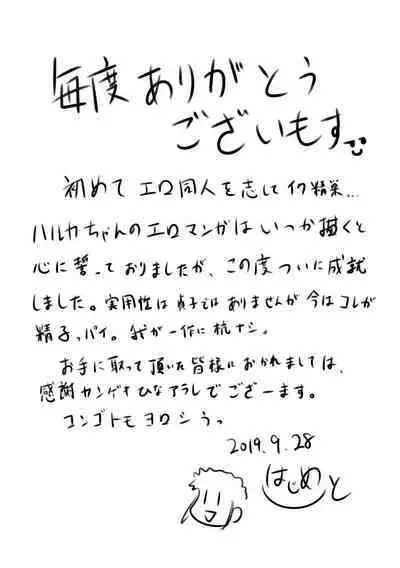 毎度ありがとう
ございもす
初めてエロ同人を志して行精巣…
ハルカちゃんのエロマンガはいつか描くと
心に誓っておりましたが、この度ついに成就
しました。実用性は貞子ではありませんが今はコレが
精子っパイ。我が一作に杭ナシ。
お手に取って頂いた皆様におかれましては、
感謝カンゲキひなアラレでございます。
コンゴトモヨロシうっ
2019.9.28
はじめと